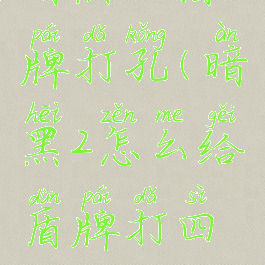 pái dǎ kǒng àn
牌打孔(暗
hēi zěn me gěi
黑2怎么给
dùn pái dǎ sì
盾牌打四